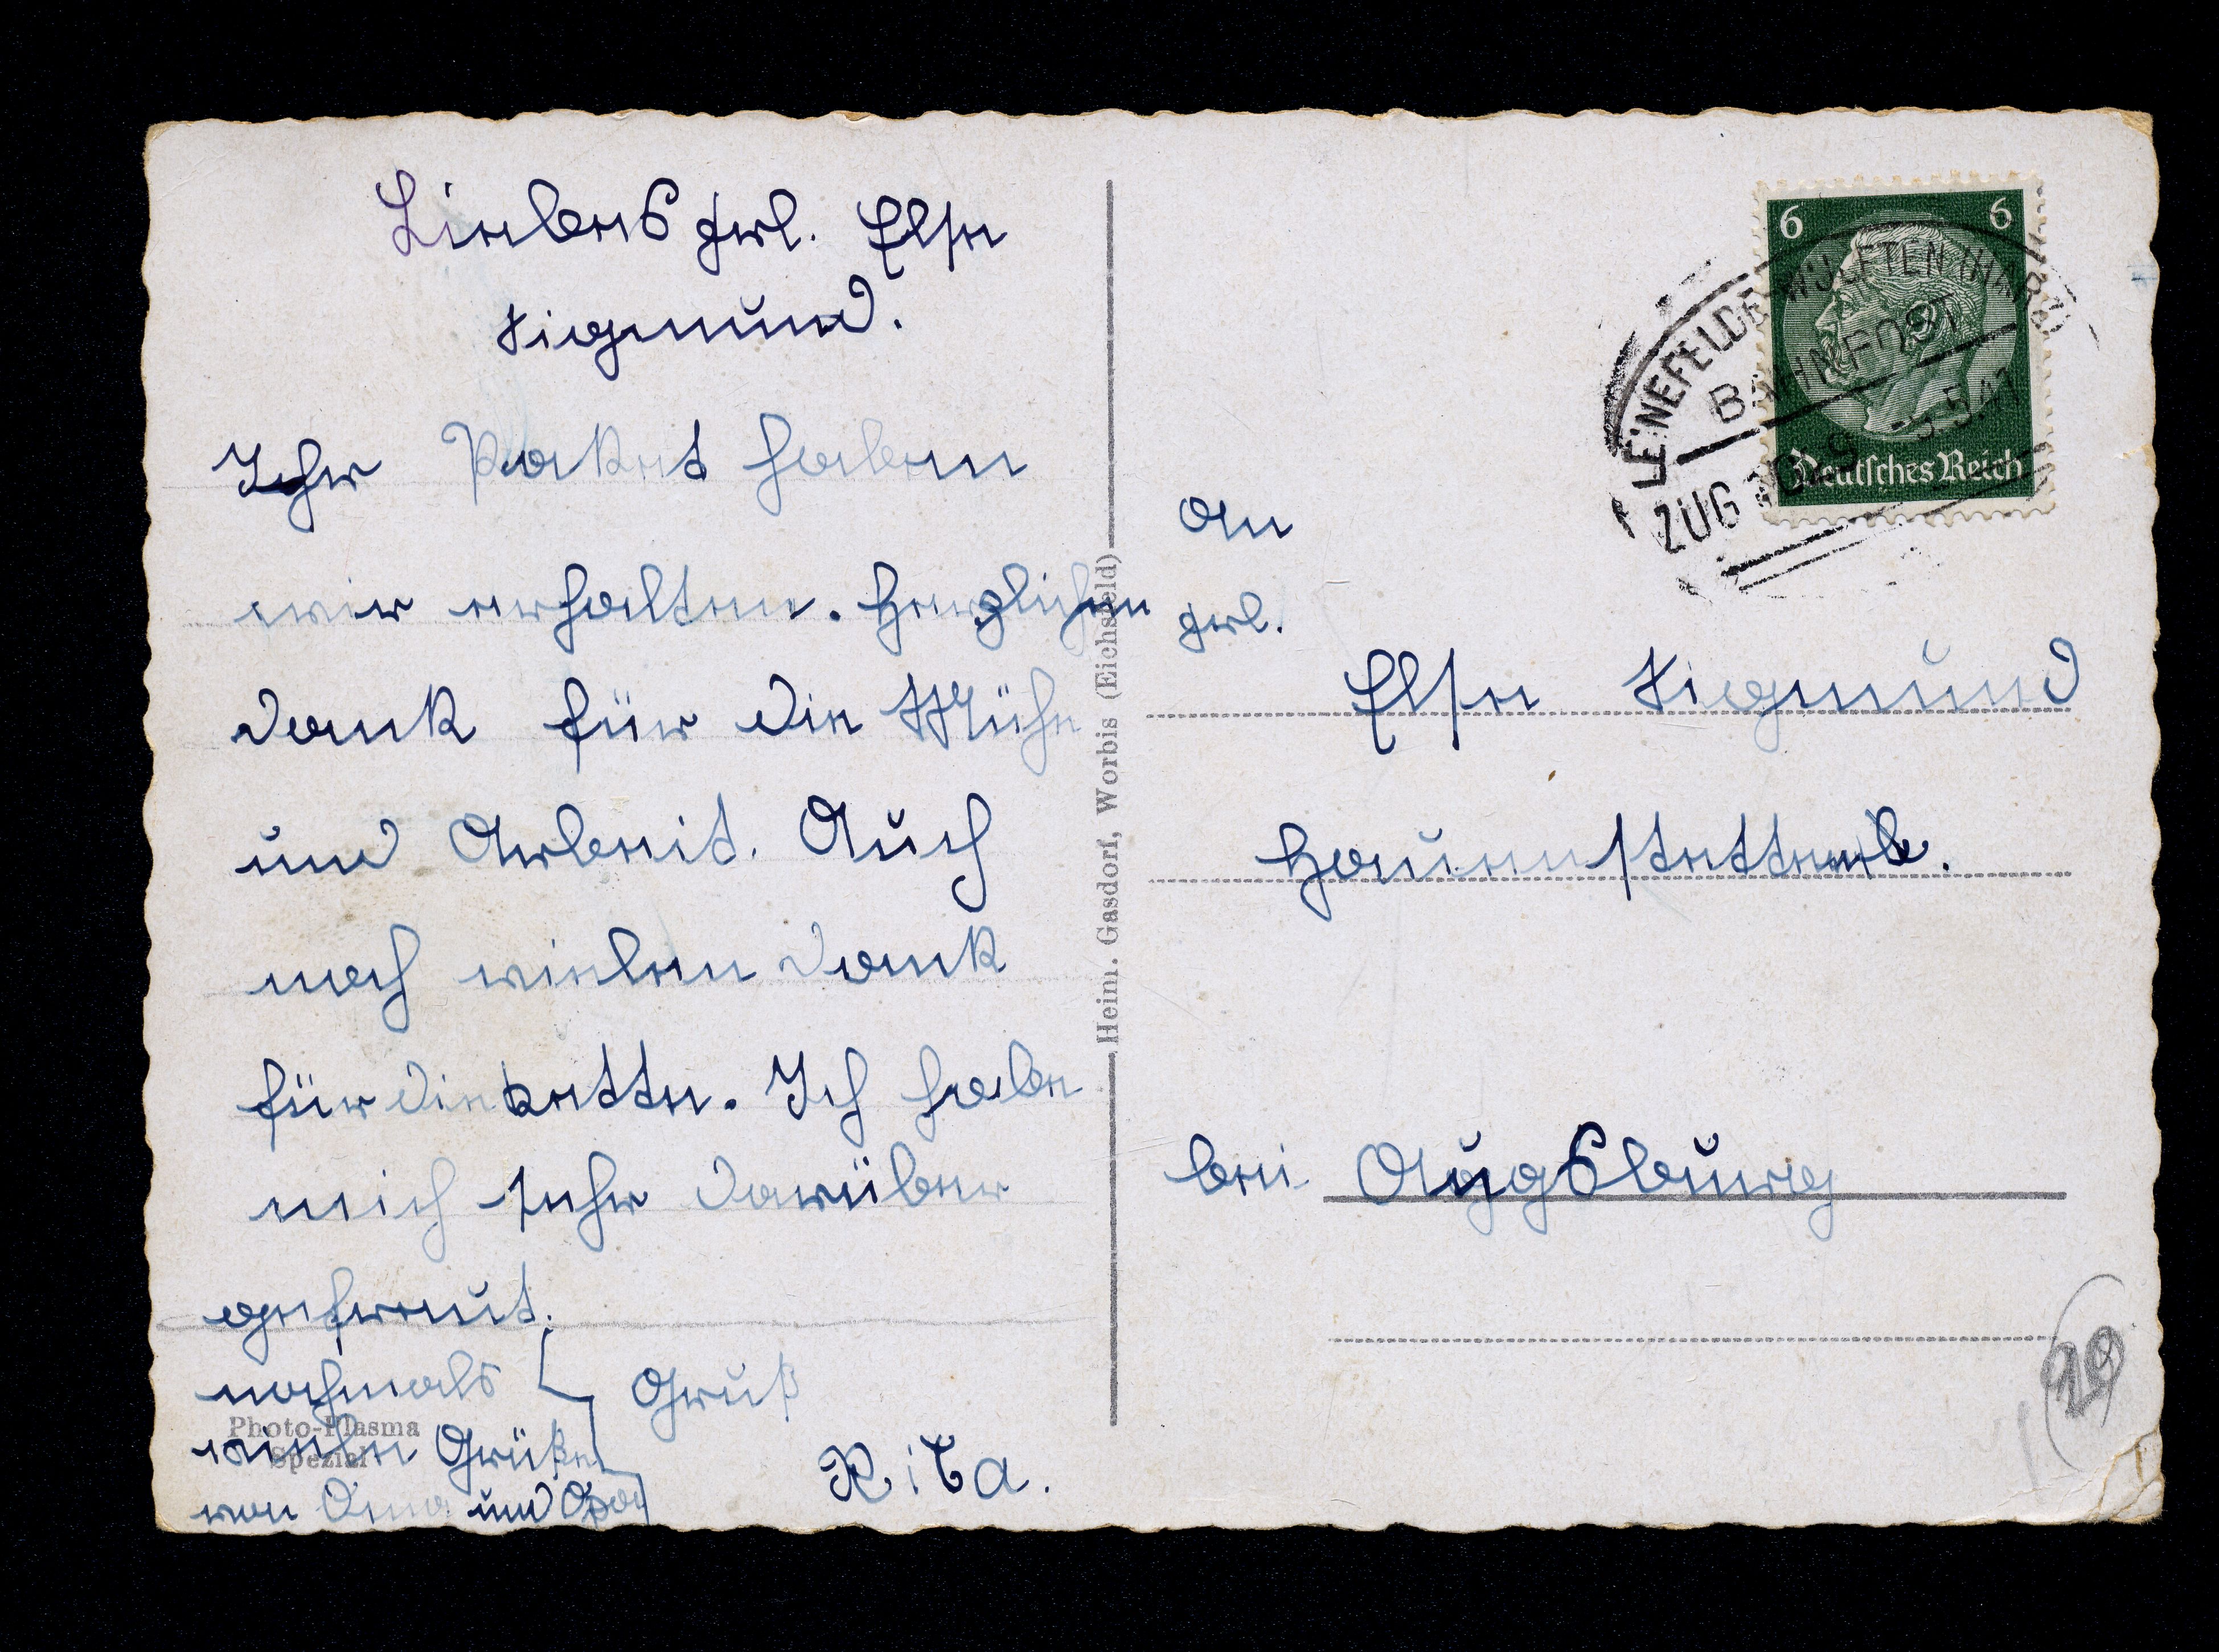 Liebes Frl. Else
Siegmund.
Ihr Paket haben
wir erhalten. Herzlichen
Dank für die Mühe
und Arbeit. Auch
noch vielen Dank
für die Kette. Ich habe
mich sehr darüber
gefreut.
nochmals
viele Grüße
von Oma und Opa
Gruß
Rita.
Photo-Plasma
Spezial
Hein. Gasdorf, Worbis (Eichsfeld)
6 6
Deutsches Reich
LEINEFELDE-WULFTEN (HARZ)
BAHNPOST
ZUG
5.41
An
Frl.
Else Siegmund
bei Augsburg
20